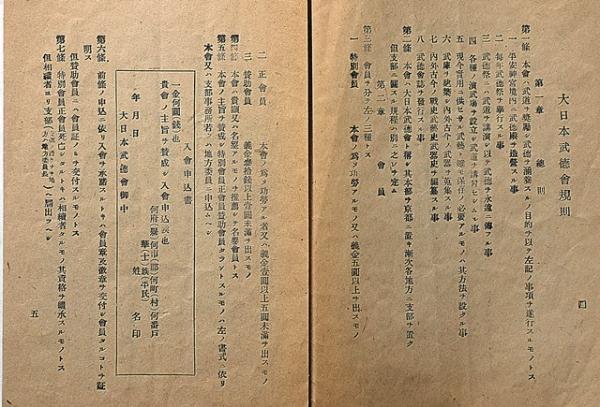 大日本武德會規則
第一章 總則
第一條 本會ハ武道ヲ奬勵シ武德ヲ涵養スルノ目的ヲ以テ左記ノ事項ヲ遂行スルモノトス
一 平安神宮境內ニ武德殿ヲ造營スル事
二 每年武德祭ヲ擧行スル事
三 武德祭ニハ武道ヲ講演シ以テ武德ヲ永遠ニ傳フル事
四 各種ノ演武場ヲ設立シ武道ヲ講習セシムル事
五 現今實用ニ供セサル武藝ト雖モ保存ノ必要アルモノハ其方法ヲ設クル事
六 武庫ヲ建築シ內外古今ノ武器ヲ蒐集スル事
七 內外古今ノ戰史武藝史武器史ヲ編纂スル事
八 武德會誌ヲ發行スル事
第二條 本會ハ大日本武德會ト稱シ其本部ヲ京都ニ置キ漸次各地方ニ支部ヲ置ク
但支部ニ關スル規程ハ別ニ之レヲ定ム
第二章 會員
第三條 會員ヲ分テ左ノ三種トス
一 特別會員 本會ノ爲メ功勞アル者又ハ義金五圓以上ヲ出スモノ
四
二 正會員 本會ノ爲メ功勞アル者又ハ義金壹圓以上五圓未滿ヲ出スモノ
三 贊助會員 義金拾錢以上壹圓未滿ヲ出スモノ
第四條 本會ハ貴顯又ハ名望アルモノヲ推薦シテ名譽會員トス
第五條 本會ノ主旨ヲ贊成シ特別會員正會員贊助會員タラントスルモノハ左ノ書式ニ依リ
本會又ハ支部事務所若シクハ地方委員ニ申込ムヘシ
入會申込書
一金何圓(錢)也
貴會ノ主旨ヲ贊成シ入會申込候也
何府(縣)何市(郡)何町(村)何番戶
華(士)族(平民)
姓名印
年月日
大日本武德會御中
第六條 前條ノ申込ニ依リ入會ヲ承諾シタルトキハ會員章及徽章ヲ交付シ會員タルコトヲ証
明ス
但贊助會員ニハ會員証ノミヲ交付スルモノトス
第七條 特別會員正會員死亡シタルトキハ相續者タルモノ其資格ヲ繼承スルモノトス
但相續者ヨリ支部 ヘ屆出ツヘシ
五